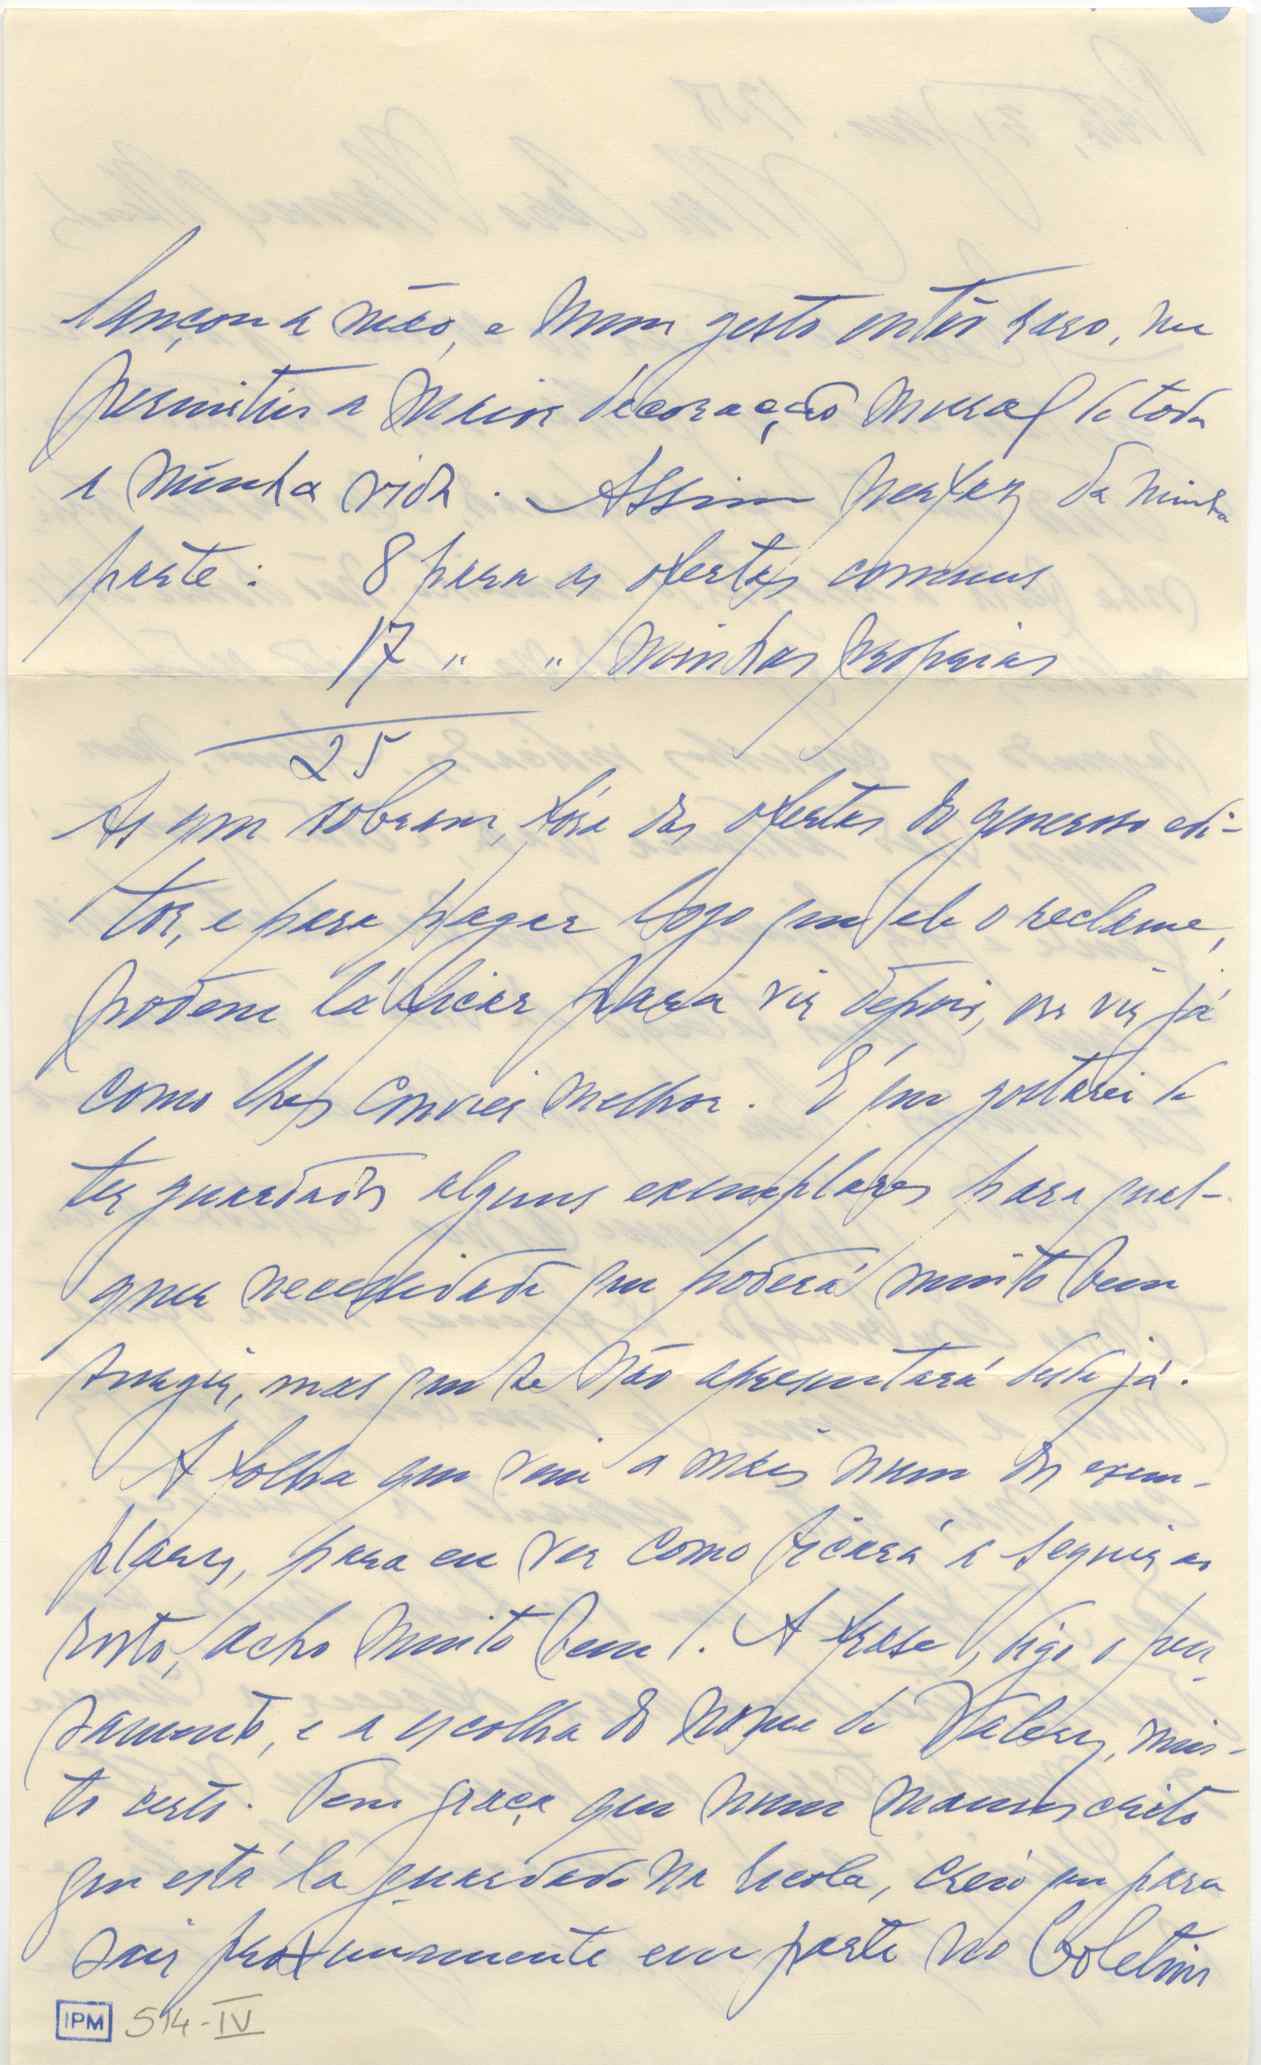 lançou a mão, e num gesto então raro, me
permitiu a maior decoração mural de toda
a minha vida. Assim perfaz da minha
parte: 8 para as ofertas comuns
17 " " minhas proprias
25
As que sobram, fóra das ofertas do generoso edi-
tor, e para pagar logo que ele o reclame,
podem lá ficar para vir depois, ou vir já
como lhes convier melhor. É que gostarei de
ter guardados alguns exemplares para qual-
quer necessidade que poderá muito bem
surgir, mas que se não apresentará desde já.
A folha que veiu a mais num dos exem-
plares, para eu ver como ficará a seguir ao
rosto, acho muito bem! A frase, digo o pen-
samento, e a escolha do nome de Valery, mui-
to certo. Tem graça que num manuscrito
que está lá guardado na Escola, creio que para
sair proximamente em parte no Boletim
IPM 514-IV